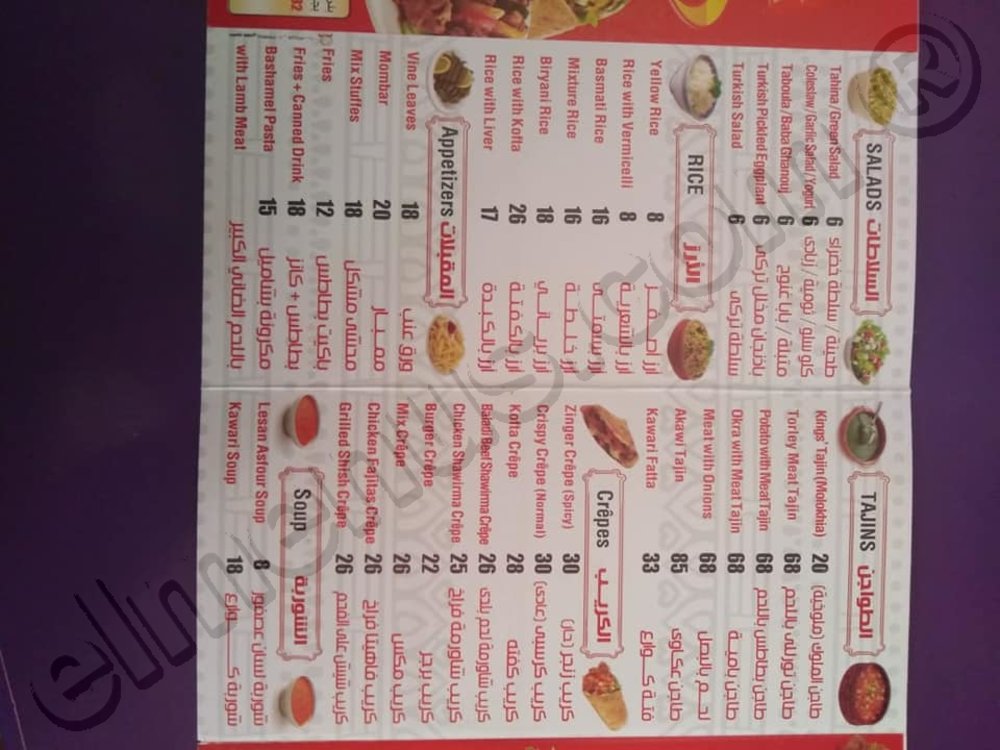 SALADS السلاطات
Tahina / Green Salad 6 طحينة / سلطة خضراء
Coleslaw / Garlic Salad / Yogurt 6 كلو سلو / تومية / زبادى
Taboula / Baba Ghanouj 6 متبلة / بابا غنوج
Turkish Pickled Eggplant 6 باذنجان مخلل تركى
Turkish Salad 6 سلطة تركى
RICE الأرز
Yellow Rice 8 ارز اصفر
Rice with Vermicelli 8 ارز بالشعرية
Basmati Rice 16 ارز بسمتى
Mixture Rice 16 ارز خلطة
Biryani Rice 18 ارز بريانى
Rice with Kofta 26 ارز بالكفتة
Rice with Liver 17 ارز بالكبدة
Appetizers المقبلات
Vine Leaves 18 ورق عنب
Mombar 20 ممبار
Mix Stuffes 18 محشى مشكل
Fries 12 باكيت بطاطس
Fries + Canned Drink 18 بطاطس + كانز
Bashamel Pasta 15 مكرونة بشاميل
with Lamb Meat باللحم الضانى الكبير
TAJINS الطواجن
Kings' Tajin (Molokhia) 20 طاجن الملوك (ملوخية)
Torley Meat Tajin 68 طاجن تورلى باللحم
Potato with Meat Tajin 68 طاجن بطاطس باللحم
Okra with Meat Tajin 68 طاجن بامية
Meat with Onions 68 لحم بالبصل
Akawi Tajin 85 طاجن عكاوى
Kawari Fatta 33 فتة كوارع
Crêpes الكريب
Zinger Crêpe (Spicy) 30 كريب زنجر (حار)
Crispy Crêpe (Normal) 30 كريب كرسبى (عادى)
Kofta Crêpe 28 كريب كفته
Baladi Beef Shawirma Crêpe 26 كريب شاورمة لحم بلدى
Chicken Shawirma Crêpe 25 كريب شاورمة فراخ
Burger Crêpe 22 كريب برجر
Mix Crêpe 26 كريب مكس
Chicken Fajitas Crêpe 26 كريب فاهيتا فراخ
Grilled Shish Crêpe 26 كريب شيش على الفحم
Soup الشوربة
Lesan Asfour Soup 8 شوربة لسان عصفور
Kawari Soup 18 شوربة كوارع
elmenus.com ®